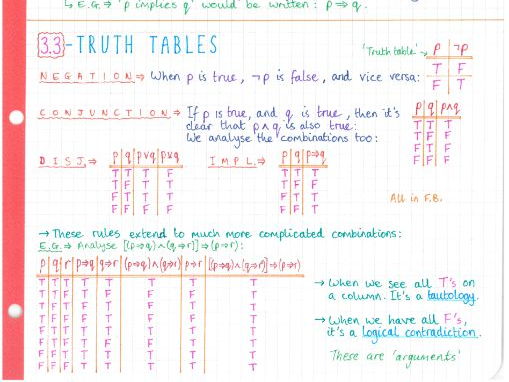 ↳ E.G. ⇒ 'p implies q' would be written: p ⇒ q.
3.3 - TRUTH TABLES
'Truth table' → p ¬p
T F
F T
NEGATION ⇒ When p is true, ¬p is false, and vice versa:
CONJUNCTION ⇒ If p is true, and q is true, then it's
clear that p∧q is also true:
We analyse the combinations too:
p q p∧q
T T T
T F F
F T F
F F F
DISJ. ⇒ p q p∨q p⊻q
T T T F
T F T T
F T T T
F F F F
IMPL. ⇒ p q p⇒q
T T T
T F F
F T T
F F T
All in F.B.
→ These rules extend to much more complicated combinations:
E.G. ⇒ Analyse [(p⇒q)∧(q⇒r)]⇒(p⇒r):
p q r p⇒q q⇒r (p⇒q)∧(q⇒r) p⇒r [(p⇒q)∧(q⇒r)]⇒(p⇒r)
→ When we see all T's on
a column. It's a tautology.
→ When we have all F's,
it's a logical contradiction.
These are 'arguments'